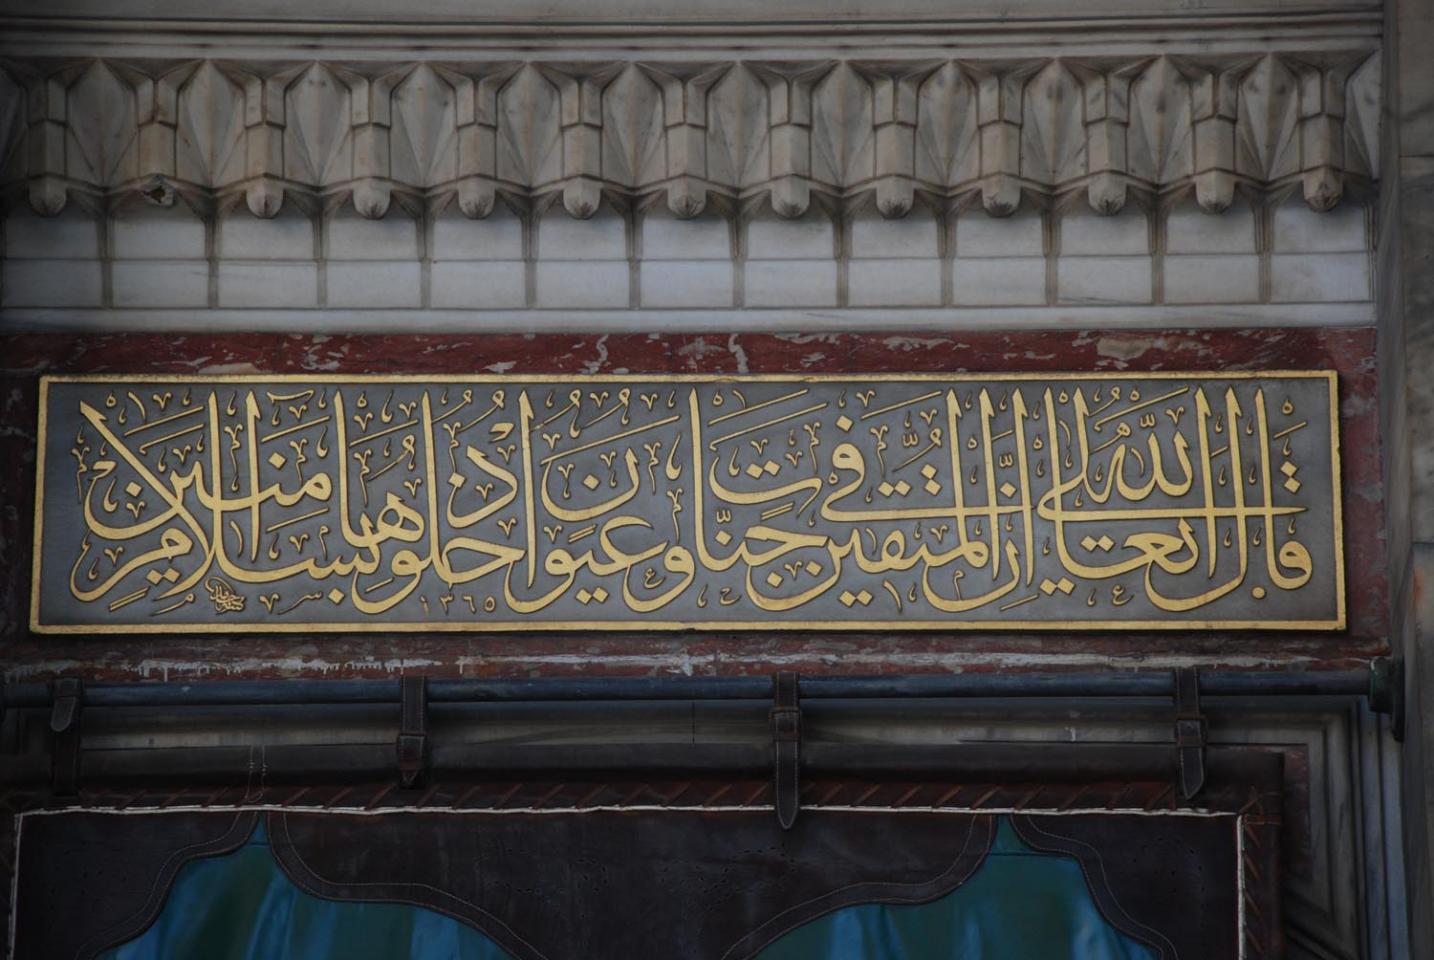 قال الله تعالى ان المتقين في جنات وعيون ادخلوها بسلام امنين
١٣٦٥